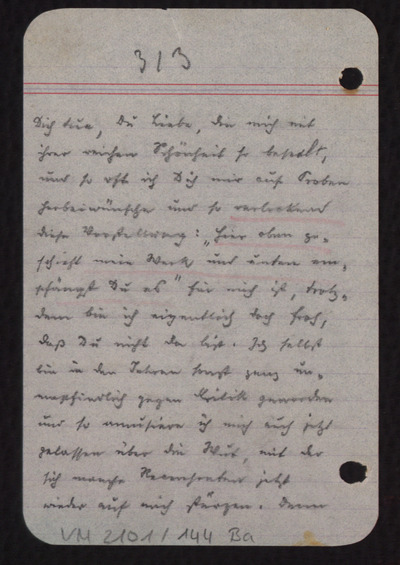 313
Dich tun, Du Liebe, die mich mit
ihrer reichen Schönheit so beseelt,
und so oft ich Dich mir aufs Proben
herbeiwünsche und so verlockend
diese Vorstellung: "Hier oben ge-
schieht mein Werk und unten em-
pfängst Du es" für mich ist, trotz-
dem bin ich eigentlich doch froh,
daß Du nicht da bist. Ich selbst
bin in den Jahren sonst ganz un-
empfindlich gegen Kritik geworden
und so amüsiere ich mich auch jetzt
gelassen über die Wut, mit der
sich manche Rezensenten jetzt
wieder auf mich stürzen. Denn
VM 2101/144 Ba